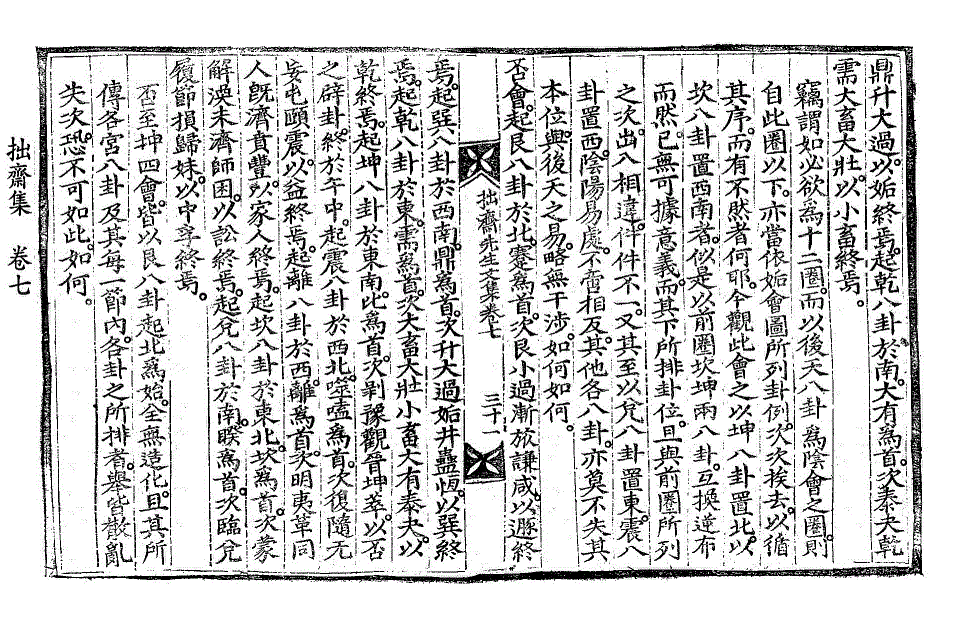 鼎升大過以姤終焉起乾八卦於南大有爲首次泰夬乾
需大畜大壯以小畜終焉
竊謂如必欲爲十二圈而以後天八卦爲陰會之圈則
自此圈以下亦當依姤會圖所列卦例次次挨去以循
其序而有不然者何耶今觀此會之以坤八卦置北以
坎八卦置西南者似是以前圈坎坤兩八卦互換違布
而然已無可據意義而其下所排卦位且與前圈所列
之次出入相違件件不一又其至以兌八卦置東震八
卦置西陰陽易處不啻相反其他各八卦亦莫不失其
本位與後天之易略無干涉如何如何
否會起艮八卦於北蹇爲首次艮小過漸旅謙咸以遯終
拙齋先生文集卷七 三十一
焉起巽八卦於西南鼎爲首次升大過姤井蠱恆以巽終
焉起乾八卦於東需爲首次大畜大壯小畜大有泰夬以
乾終焉起坤八卦於東南比爲首次剝豫觀晉坤萃以否
之辟卦終於午中起震八卦於西北噬嗑爲首次復隨无
妄屯頤震以益終焉起離八卦於西離爲首次明夷革同
人旣濟賁豐以家人終焉起坎八卦於東北坎爲首次蒙
解渙未濟師困以訟終焉起兌八卦於南睽爲首次臨兌
履節損歸妹以中孚終焉
否至坤四會皆以艮八卦起北爲始全無造化且其所
傳各宮八卦及其每一節內各卦之所排者擧皆散亂
失次恐不可如此如何
拙齋集 卷七